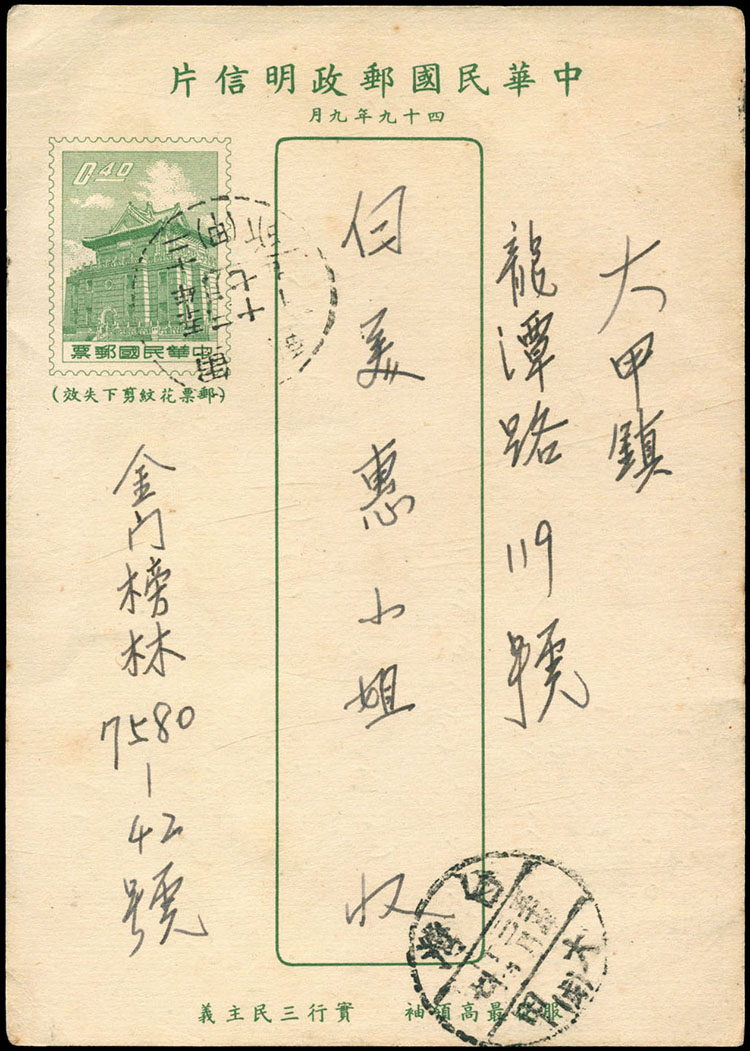 中華民國郵政明信片
四十九年九月
0.40
中華民國郵票
(郵票花紋剪下失效)
大甲鎮
龍潭路119號
美惠小姐 收
金门榜林7580-42號
服從最高領袖 實行三民主義
台灣
大甲